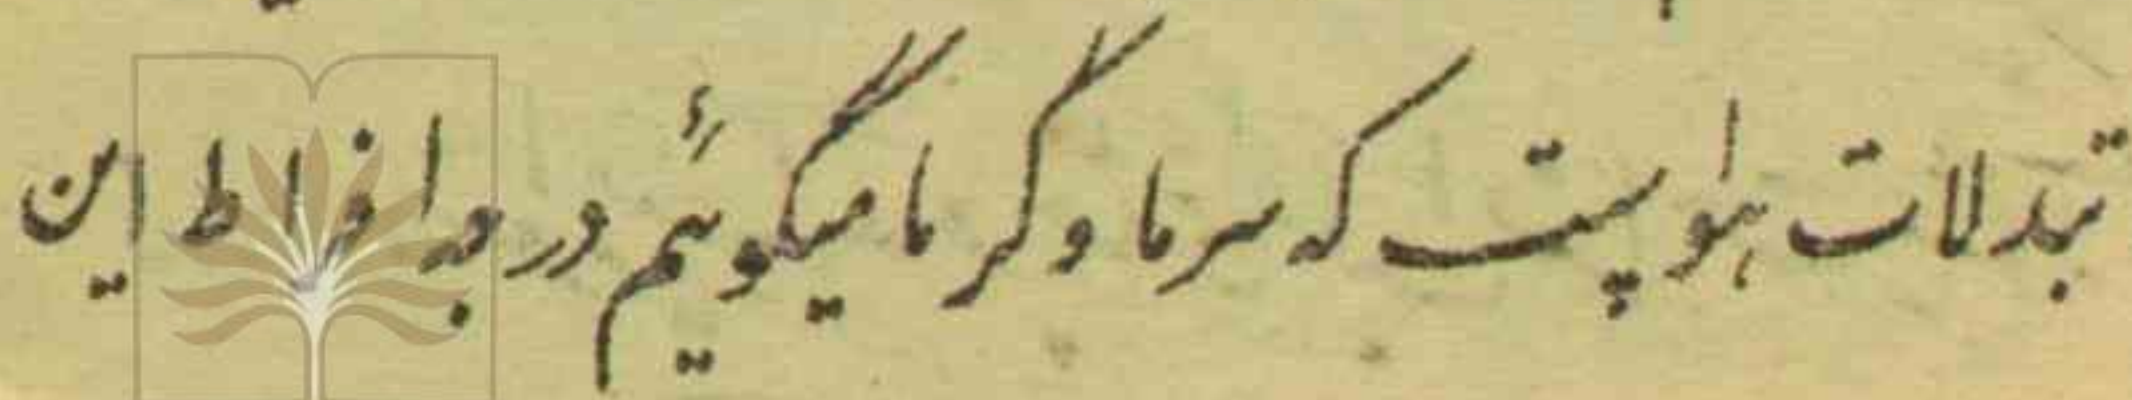 تبدلات هوایست که سرما و گرما میگوئیم درجه افراط این